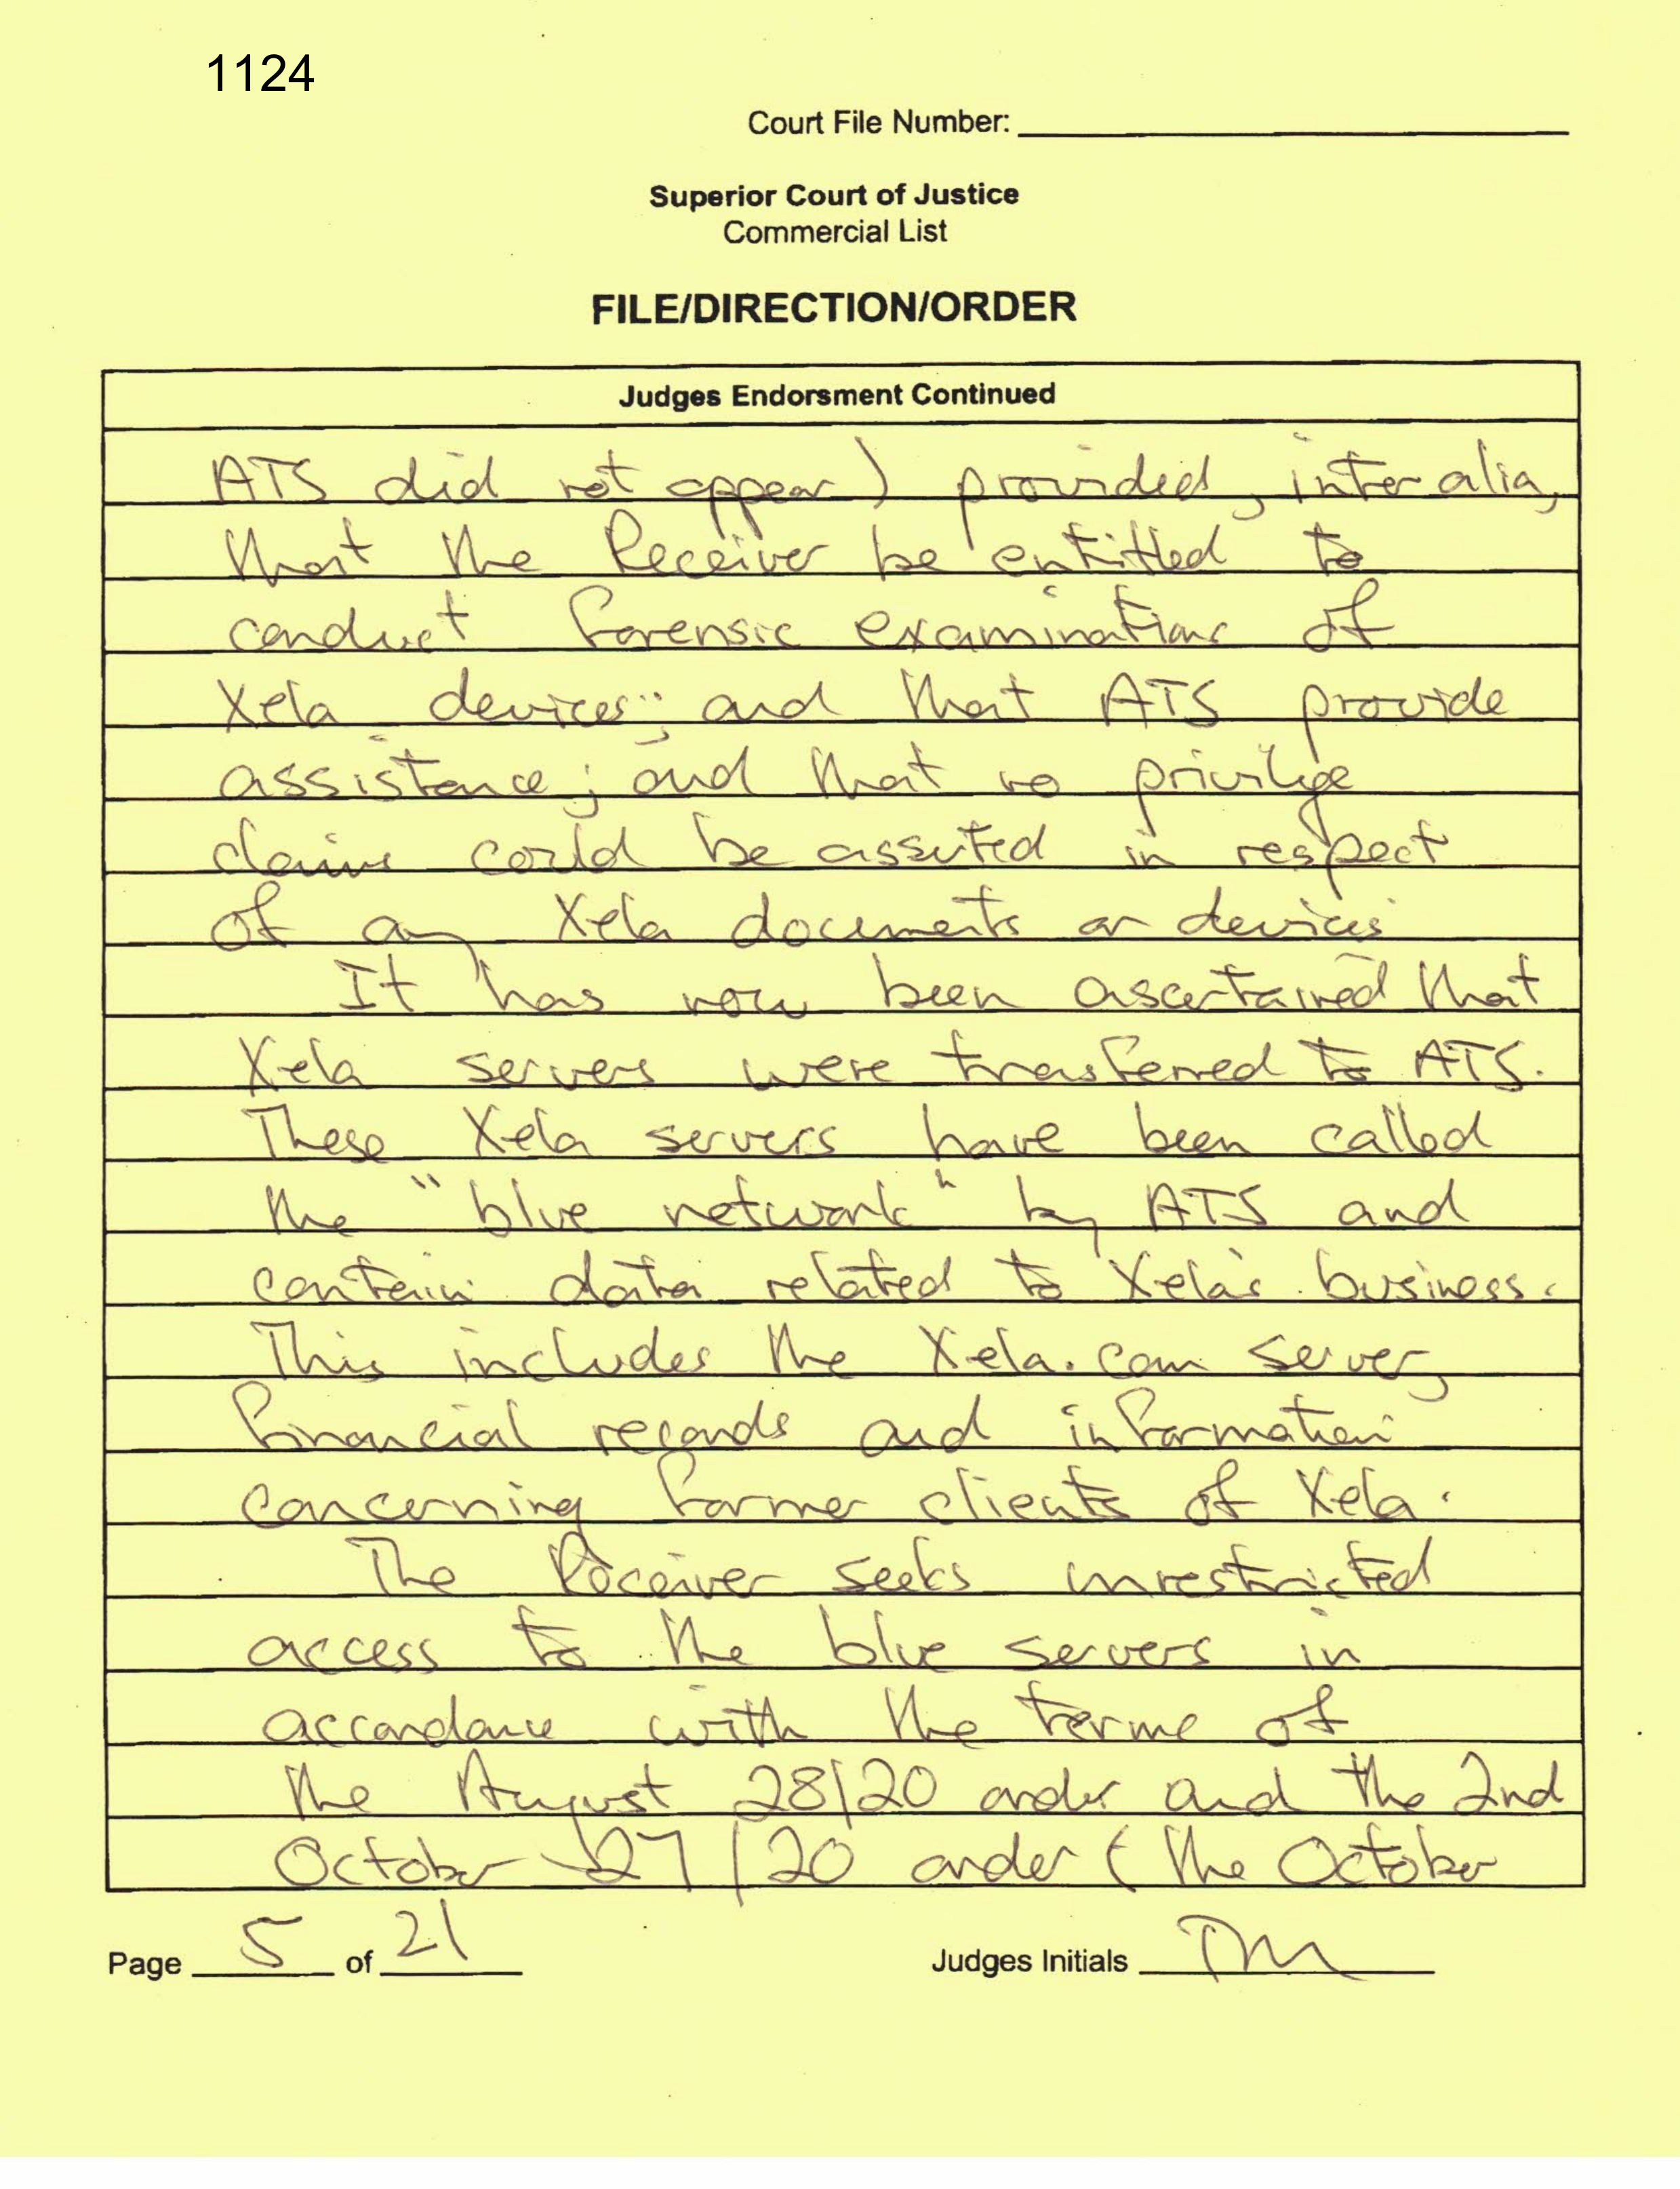 1124
Court File Number:
Superior Court of Justice
Commercial List
FILE/DIRECTION/ORDER
Judges Endorsment Continued
ATS did not appear) provided, inter alia,
that the Receiver be entitled to
conduct forensic examinations of
Xela devices; and that ATS provide
assistance; and that no privilege
claims could be asserted in respect
of any Xela documents or devices
It has now been ascertained that
Xela servers were transferred to ATS.
These Xela servers have been called
the "blue network" by ATS and
contain data related to Xela's business.
This includes the Xela.com server,
financial records and information
concerning former clients of Xela.
The Receiver seeks unrestricted
access to the blue servers in
accordance with the terms of
the August 28/20 order and the 2nd
October 27/20 order (the October
Page 5 of 21
Judges Initials TM